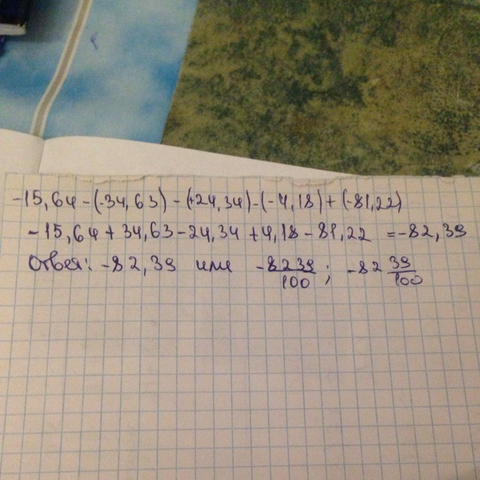 -15,64-(-34,63)-(+24,34)-(-4,18)+(-81,22)
-15,64+34,63-24,34+4,18-81,22 =-82,39
Ответ: -82,39 или -8239/100; -82 39/100